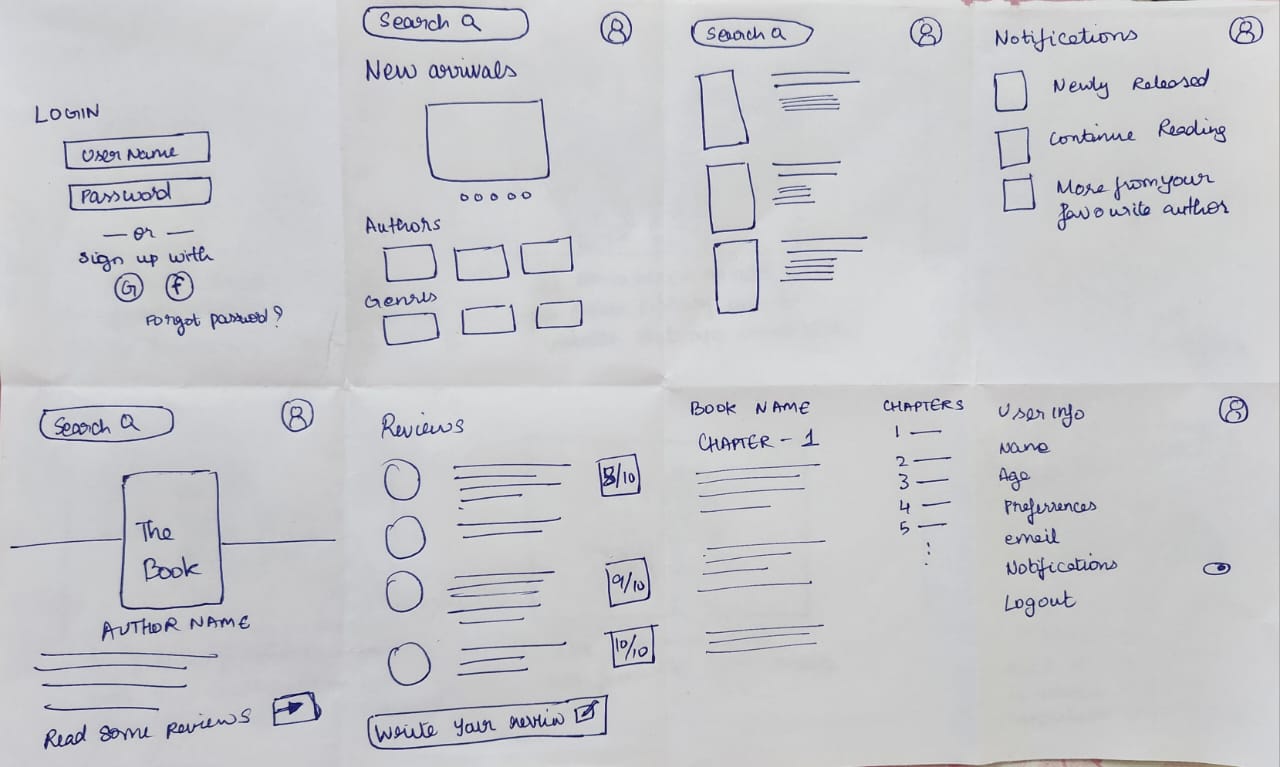 LOGIN
User Name
Password
— or —
Sign up with
G f
Forgot password?
Search
New arrivals
Authors
Genres
Search
Notifications
Newly Released
Continue Reading
More from your
favourite author
Search
The
Book
AUTHOR NAME
Read some Reviews
Reviews
8/10
9/10
10/10
Write your review
BOOK NAME
CHAPTER - 1
CHAPTERS
1 —
2 —
3 —
4 —
5 —
User info
Name
Age
Preferrences
email
Notifications
Logout